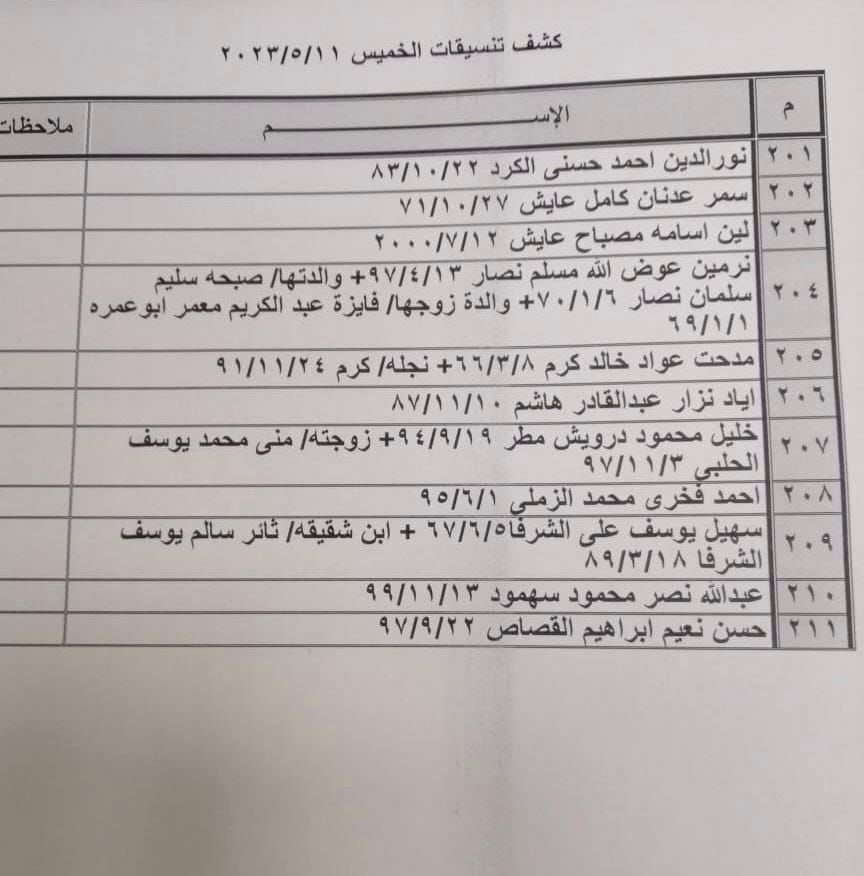 كشف تنسيقات الخميس ٢٠٢٣/٥/١١
م الإســـــــــــــــــــــــم ملاحظات
٢٠١ نورالدين احمد حسنى الكرد ٨٣/١٠/٢٢
٢٠٢ سمر عدنان كامل عايش ٧١/١٠/٢٧
٢٠٣ لين اسامه مصباح عايش ٢٠٠٠/٧/١٢
٢٠٤ نرمين عوض الله مسلم نصار ٩٧/٤/١٣+ والدتها/ صبحه سليم
سلمان نصار ٧٠/١/٦+ والدة زوجها/ فايزة عبد الكريم معمر ابوعمره
٦٩/١/١
٢٠٥ مدحت عواد خالد كرم ٦٦/٣/٨+ نجله/ كرم ٩١/١١/٢٤
٢٠٦ اياد نزار عبدالقادر هاشم ٨٧/١١/١٠
٢٠٧ خليل محمود درويش مطر ٩٤/٩/١٩+ زوجته/ منى محمد يوسف
الحلبي ٩٧/١١/٣
٢٠٨ احمد فخرى محمد الزملي ٩٥/٦/١
٢٠٩ سهيل يوسف على الشرفا٦٧/٦/٥ + ابن شقيقه/ ثائر سالم يوسف
الشرفا ٨٩/٣/١٨
٢١٠ عبدالله نصر محمود سهمود ٩٩/١١/١٣
٢١١ حسن نعيم ابراهيم القصاص ٩٧/٩/٢٢